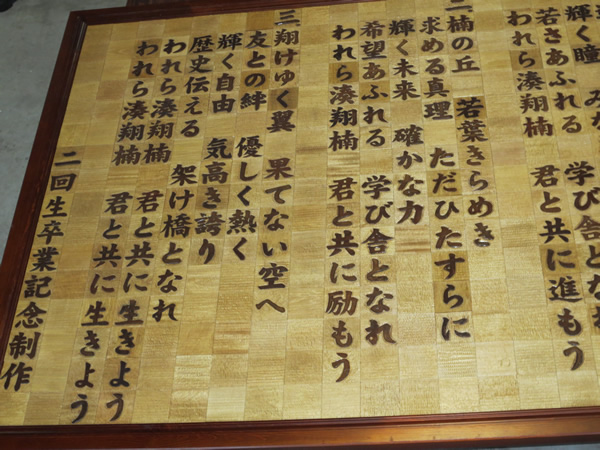 輝く瞳
若さあふれる 学び舎となれ
われら湊翔楠 君と共に進もう
二楠の丘 若葉きらめき
求める真理 ただひたすらに
輝く未来 確かな力
希望あふれる 学び舎となれ
われら湊翔楠 君と共に励もう
三翔けゆく翼 果てない空へ
友との絆 優しく熱く
輝く自由 気高き誇り
歴史伝える 架け橋となれ
われら湊翔楠 君と共に生きよう
われら湊翔楠 君と共に生きよう
二回生卒業記念制作